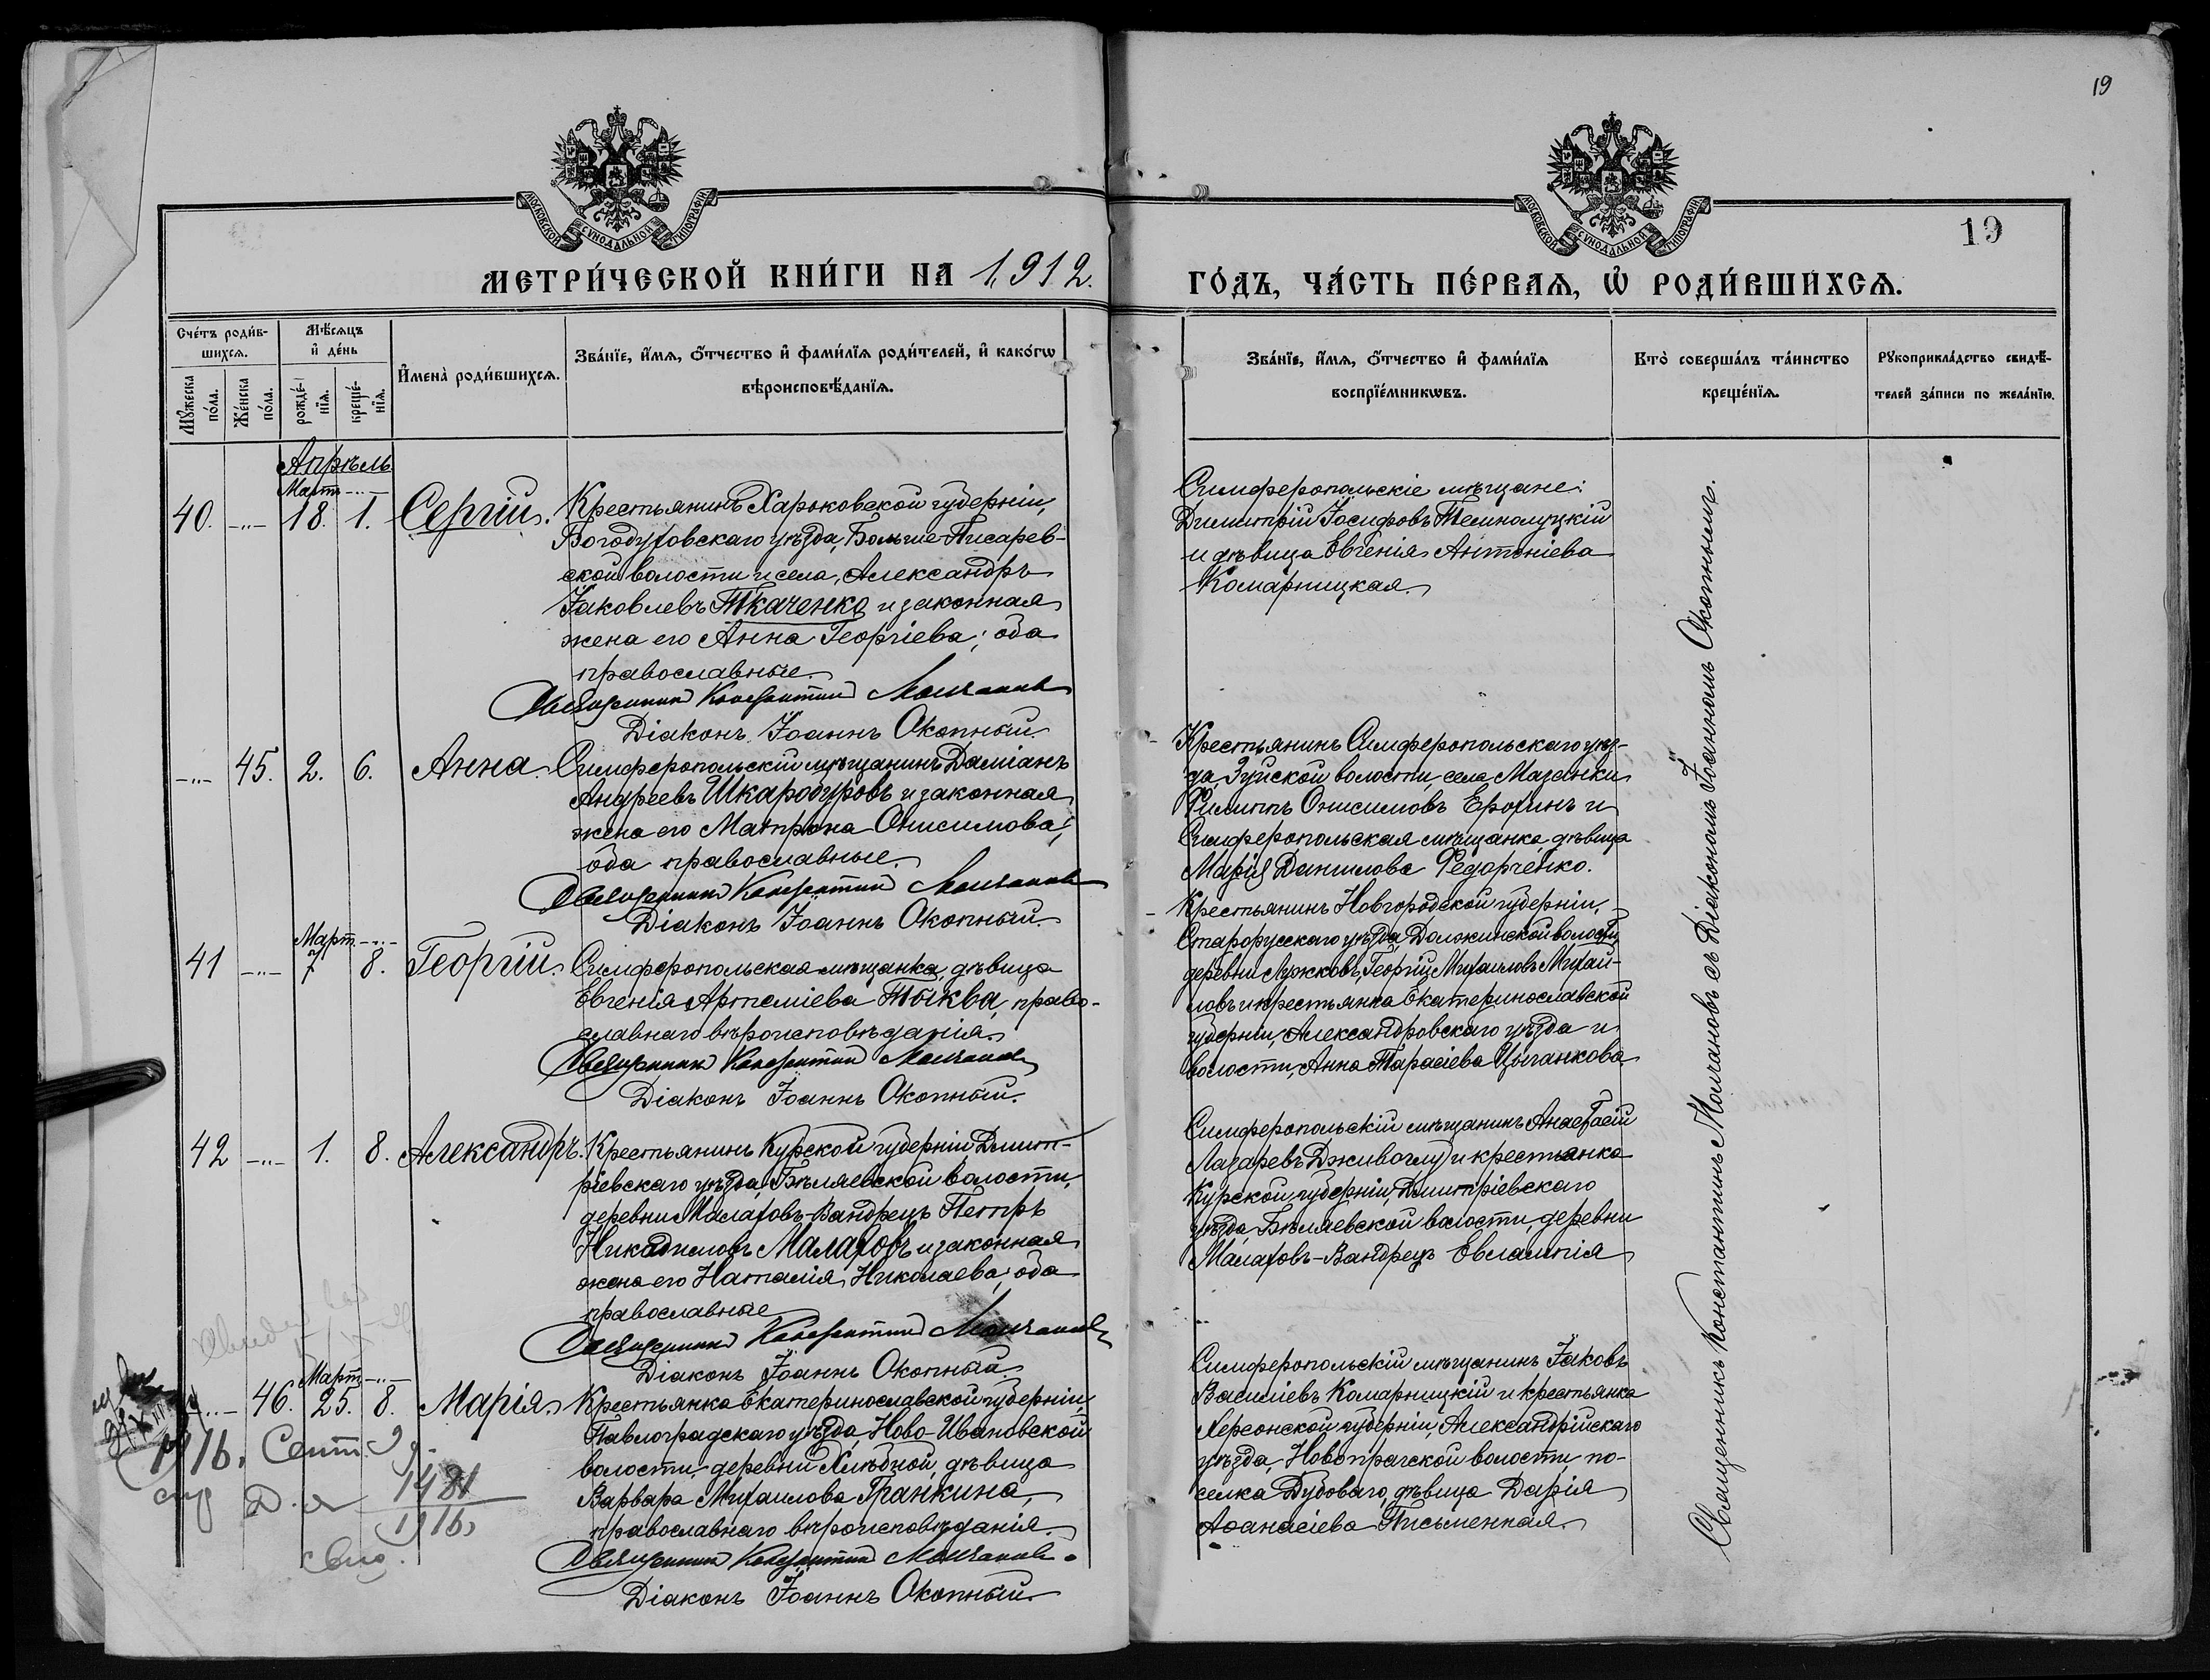 19
МОСКОВСКОЙ СѴНОДАЛЬНОЙ ТИПОГРАФІИ
МОСКОВСКОЙ СѴНОДАЛЬНОЙ ТИПОГРАФІИ
19
МЕТРИ́ЧЕСКОЙ КНИ́ГИ НА 1912.
ГО́ДЪ, ЧА́СТЬ ПЕ́РВАѦ, Ѡ҆ РОДИ́ВШИХСѦ.
Сче́тъ роди́в-
шихсѧ.
Мꙋ́жеска по́ла.
Же́нска по́ла.
Мѣ́сѧцъ
и҆ де́нь
рожде́-
нїѧ.
креще́-
нїѧ.
И҆мена̀ роди́вшихсѧ.
Зва́нїе, и҆́мѧ, ѻ҆́тчество и҆ фами́лїѧ роди́телей, и҆ како́гѡ
вѣроисповѣ́данїѧ.
Зва́нїе, и҆́мѧ, ѻ҆́тчество и҆ фами́лїѧ
воспрїе́мникѡвъ.
Кто̀ соверша́лъ та́инство
креще́нїѧ.
Рꙋкоприкла́дство свидѣ́-
телей за́писи по жела́нїю.
Апрѣль
Мартъ -"-
40. -"- 18. 1. Сергій. Крестьянинъ Харьковской губерніи,
Богодуховскаго уѣзда, Больше-Писарев-
ской волости и села, Александръ
Іаковлевъ Ткаченко и законная
жена его Анна Георгіева; оба
православные.
Священникъ Константинъ Молчановъ
Діаконъ Іоаннъ Окопный.
Симферопольскіе мѣщане:
Димитрій Іосифовъ Темнолуцкій
и дѣвица Евгенія Антоніева
Комарницкая.
-"- 45. 2. 6. Анна. Симферопольскій мѣщанинъ Даміанъ
Андреевъ Шкародуровъ и законная
жена его Матрона Онисимова;
оба православные.
Священникъ Константинъ Молчановъ
Діаконъ Іоаннъ Окопный.
Крестьянинъ Симферопольскаго уѣз-
да, Зуйской волости, села Мазанки
Филиппъ Онисимовъ Ерохинъ и
Симферопольская мѣщанка, дѣвица
Марія Данилова Федорченко.
Мартъ -"-
41 -"- 7 8. Георгій. Симферопольская мѣщанка, дѣвица
Евгенія Артеміева Тыква, право-
славнаго вѣроисповѣданія.
Священникъ Константинъ Молчановъ
Діаконъ Іоаннъ Окопный.
Крестьянинъ Новгородской губерніи,
Старорусскаго уѣзда, Должинской волости,
деревни Лужковъ, Георгій Михаиловъ Михай-
ловъ и крестьянка Екатеринославской
губерніи, Александровскаго уѣзда и
волости, Анна Тарасіева Цыганкова.
42 -"- 1. 8. Александръ. Крестьянинъ Курской губерніи Дмит-
ріевскаго уѣзда, Бѣляевской волости,
деревни Малахов-Вандрецъ Петръ
Никодимовъ Малаховъ и законная
жена его Наталія Николаева; оба
православные
Священникъ Константинъ Молчановъ
Діаконъ Іоаннъ Окопный.
Симферопольскій мѣщанинъ Анастасій
Лазаревъ Дживоглу и крестьянка
Курской губерніи, Дмитріевскаго
уѣзда, Бѣляевской волости, деревни
Малаховъ-Вандрецъ Евлампія
Мартъ -"-
-"- 46. 25. 8. Марія. Крестьянка Екатеринославской губерніи,
Павлоградскаго уѣзда, Ново-Ивановской
волости, деревни Хлѣбной, дѣвица
Варвара Михаилова Гранкина,
православнаго вѣроисповѣданія.
Священникъ Константинъ Молчановъ.
Діаконъ Іоаннъ Окопный.
Симферопольскій мѣщанинъ Іаковъ
Василіевъ Комарницкій и крестьянка
Херсонской губерніи, Александрійскаго
уѣзда, Новопрагской волости, по-
селка Дубоваго, дѣвица Дарія
Аѳанасіева Письменная.
Священникъ Константинъ Молчановъ съ Діакономъ Іоанномъ Окопнымъ.
1916. Сент. 9
1481
1916